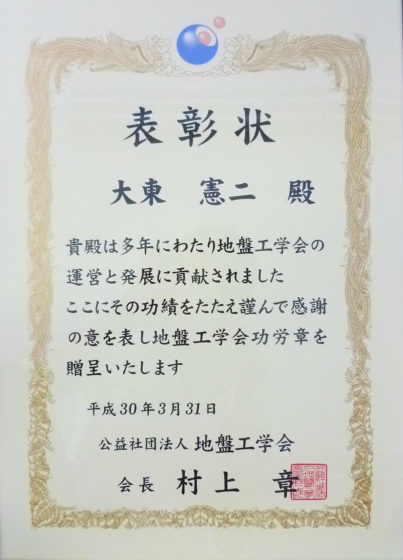 表彰状
大東 憲二 殿
貴殿は多年にわたり地盤工学会の
運営と発展に貢献されました
ここにその功績をたたえ謹んで感謝
の意を表し地盤工学会功労章を
贈呈いたします
平成30年3月31日
公益社団法人 地盤工学会
会長 村上 章